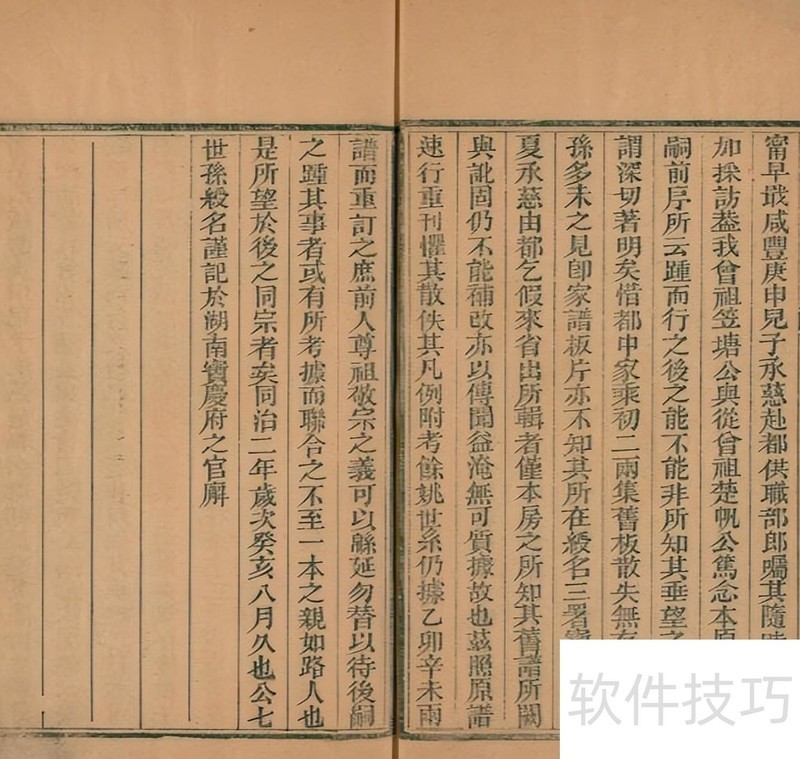 甯早戢咸豐庚申兒子承慈赴都供職部郎囑其隨時
加採訪葢我曾祖笠塘公與從曾祖楚帆公篤念本原
嗣前序所云踵而行之後之能不能非所知其垂望之
謂深切著明矣惜都中家乘初二兩集舊板散失無存
孫多未之見卽家譜板片亦不知其所在綬名三署寶
夏承慈由都乞假來省出所輯者僅本房之所知其舊譜所闕
與訛固仍不能補改亦以傳聞益淹無可質據故也茲照原譜
速行重刊懼其散佚其凡例附考餘姚世系仍據乙卯辛未兩
譜而重訂之庶前人尊祖敬宗之義可以緜延勿替以待後嗣
之踵其事者或有所考據而聯合之不至一本之親如路人也
是所望於後之同宗者矣同治二年歲次癸亥八月久也公七
世孫綬名謹記於湖南寶慶府之官廨
软件技巧